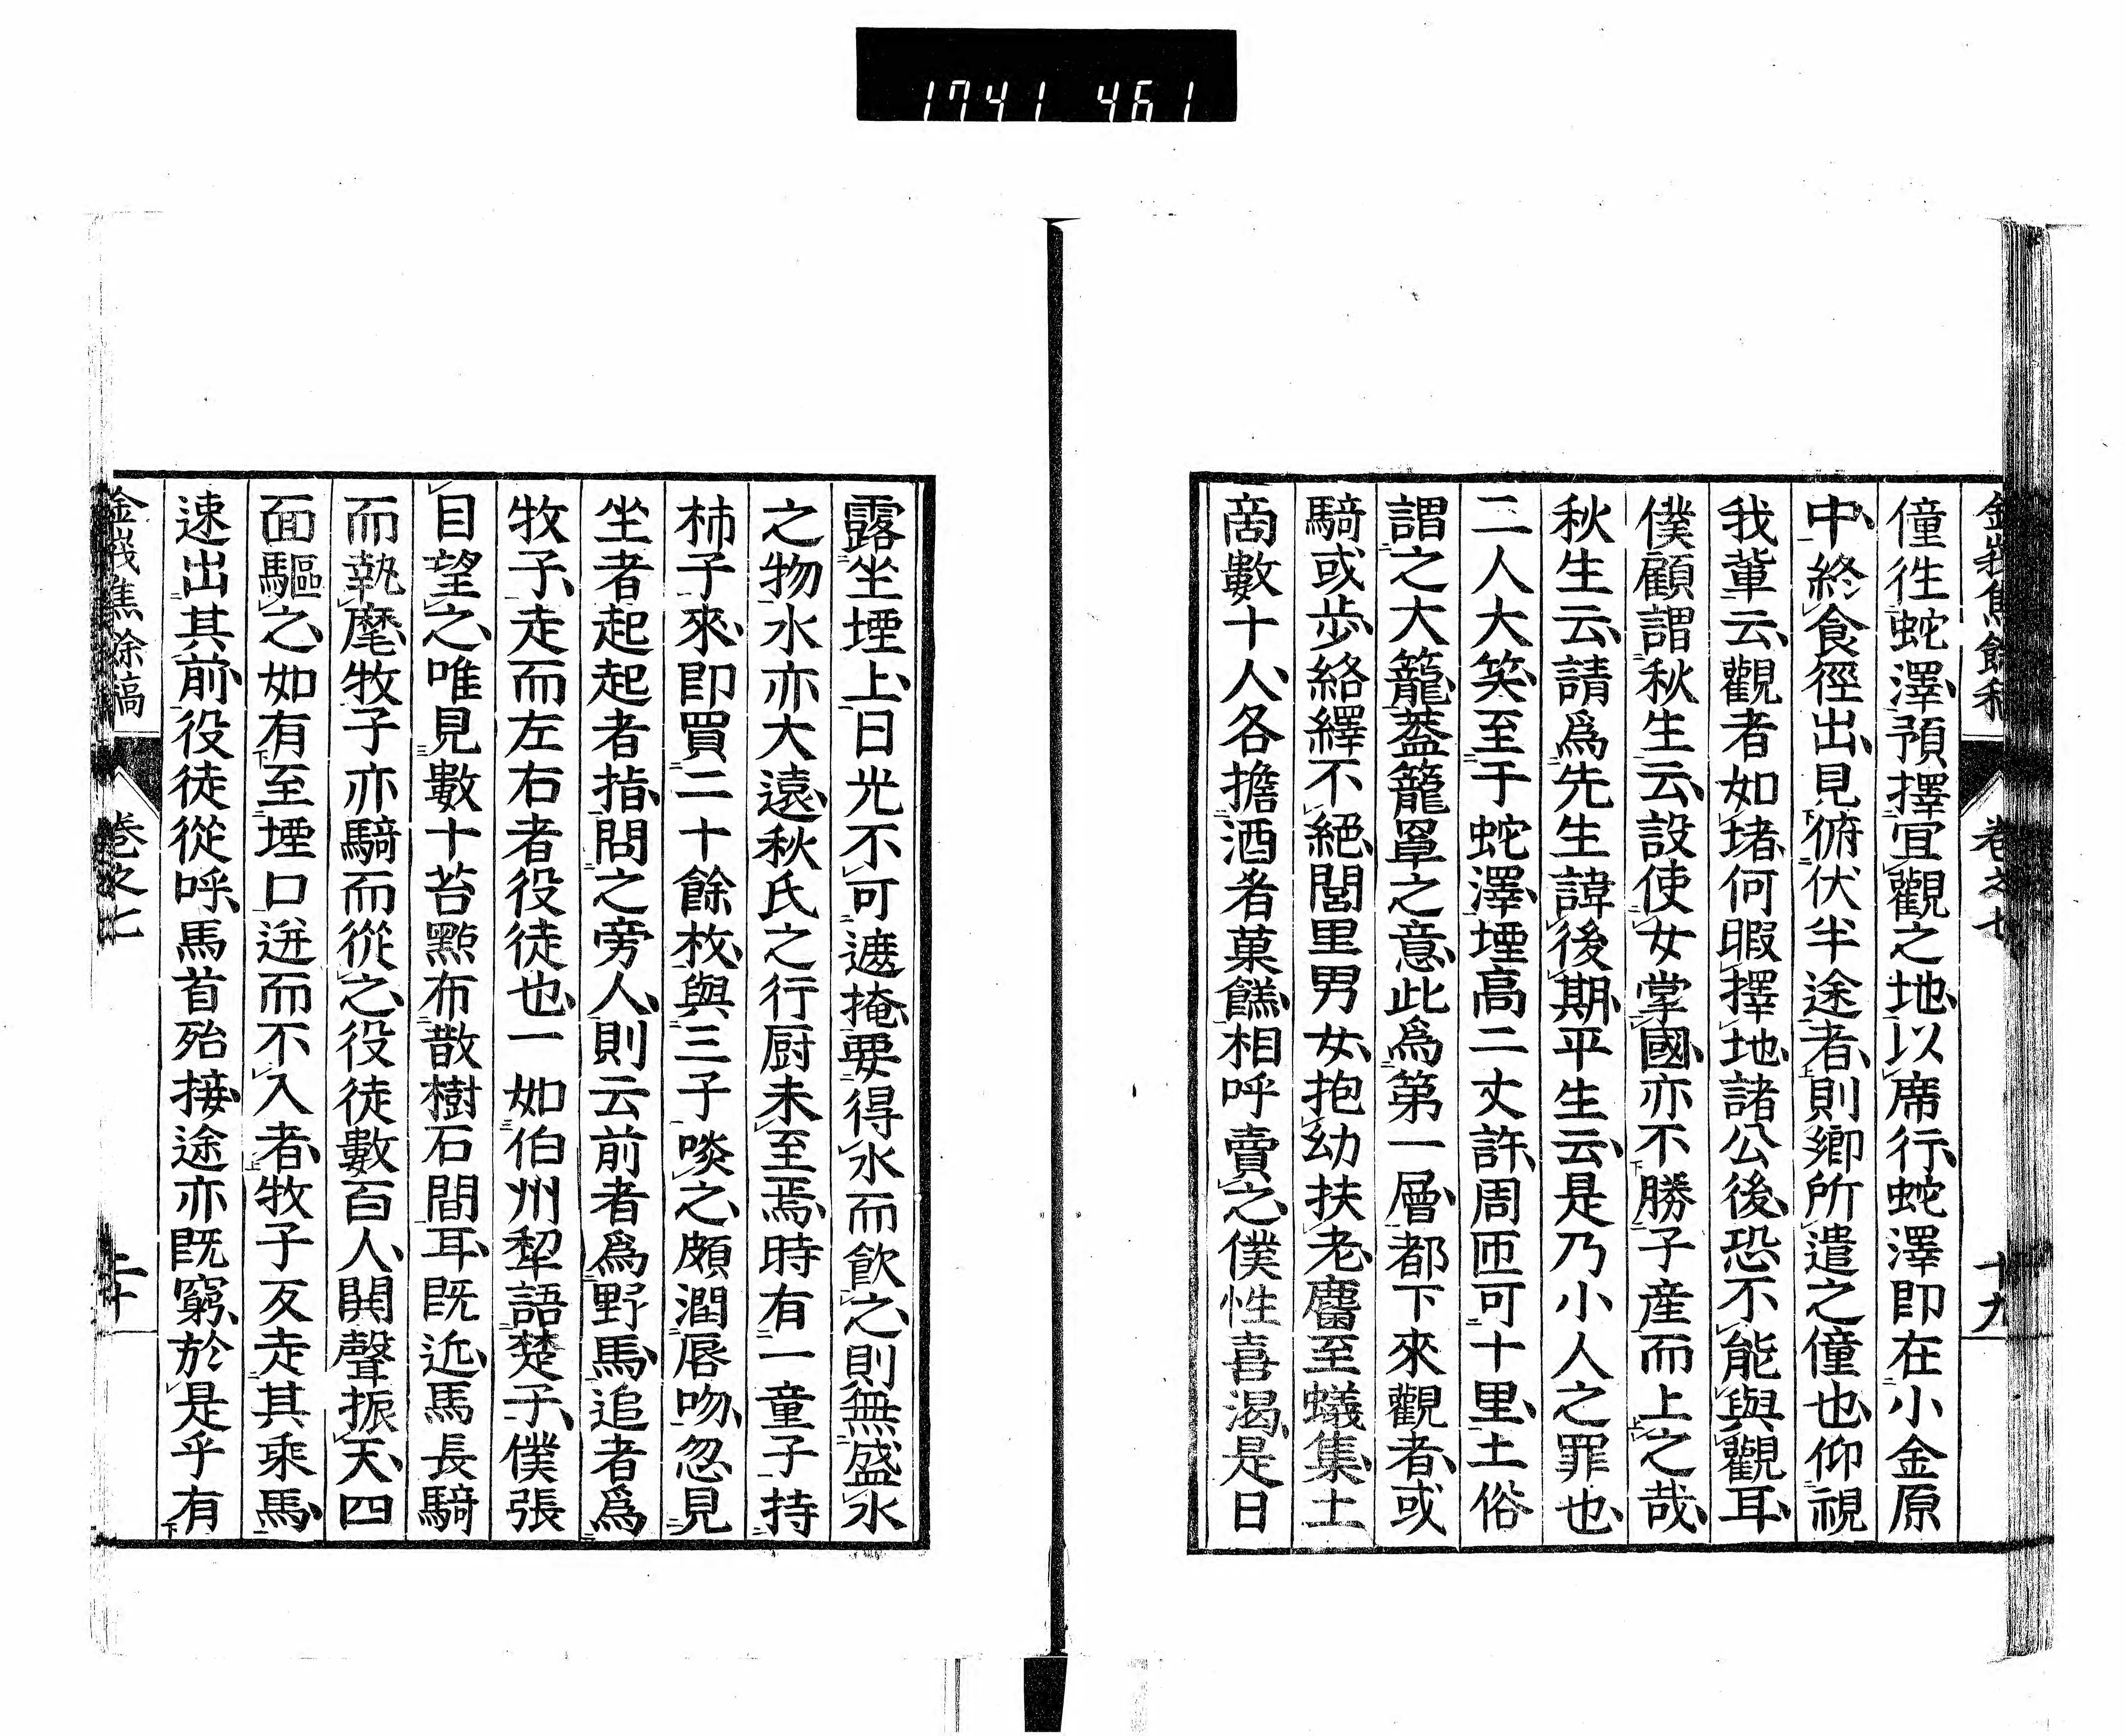 1741 461
金峩焦餘稿 卷之七 十九
僮徃蛇澤、預擇宜觀之地、以席行、蛇澤即在小金原
中、終食徑出、見俯伏半途者、則郷所遣之僮也、仰視
我輩云、觀者如堵、何暇擇地、諸公後、恐不能與觀耳、
僕顧謂秋生云、設使女掌國、亦不勝子産而上之哉、
秋生云、請爲先生諱後期、平生云、是乃小人之罪也、
二人大笑、至于蛇澤、堙高二丈許、周匝可十里、土俗
謂之大籠、葢籠罩之意、此爲第一層、都下來觀者、或
騎或歩、絡繹不絕、閭里男女、抱幼扶老、麕至蟻集、土
啇數十人、各擔酒肴菓餻、相呼賣之、僕性喜渴、是日
露坐堙上、日光不可遮掩、要得水而飮之、則無盛水
之物、水亦大遠、秋氏之行厨未至焉、時有一童子持
柿子來、即買二十餘枚、與三子啖之、頗潤唇吻、忽見
坐者起起者指、問之旁人、則云前者爲野馬、追者爲
牧子、走而左右者役徒也、一如伯州犂語楚子、僕張
目望之、唯見數十苔點布散樹石間耳、既近、馬長騎
而執麾、牧子亦騎而從之、役徒數百人、鬨聲振天、四
面驅之、如有至堙口迸而不入者、牧子亙走其乘馬、
速出其前、役徒從呼、馬首殆接、途亦既窮、於是乎有
金峩焦餘稿 卷之七 二十